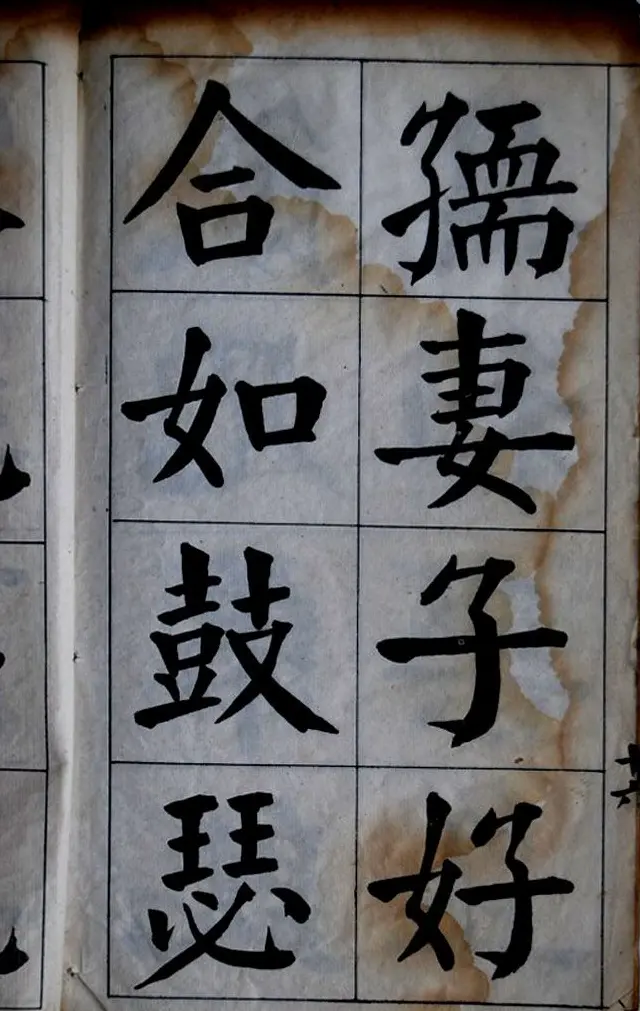 孺妻子好
合如鼓瑟